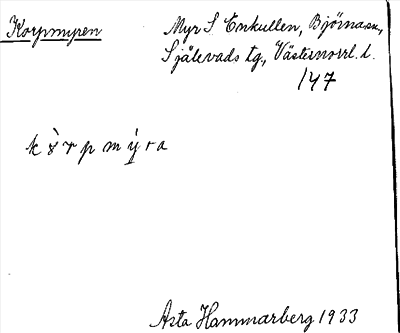 Korpmyren
Myr S Enkullen, Björnaån,
Själevads tg., Västernorrl. l.
147
k r p m y r a
Asta Hammarberg 1933